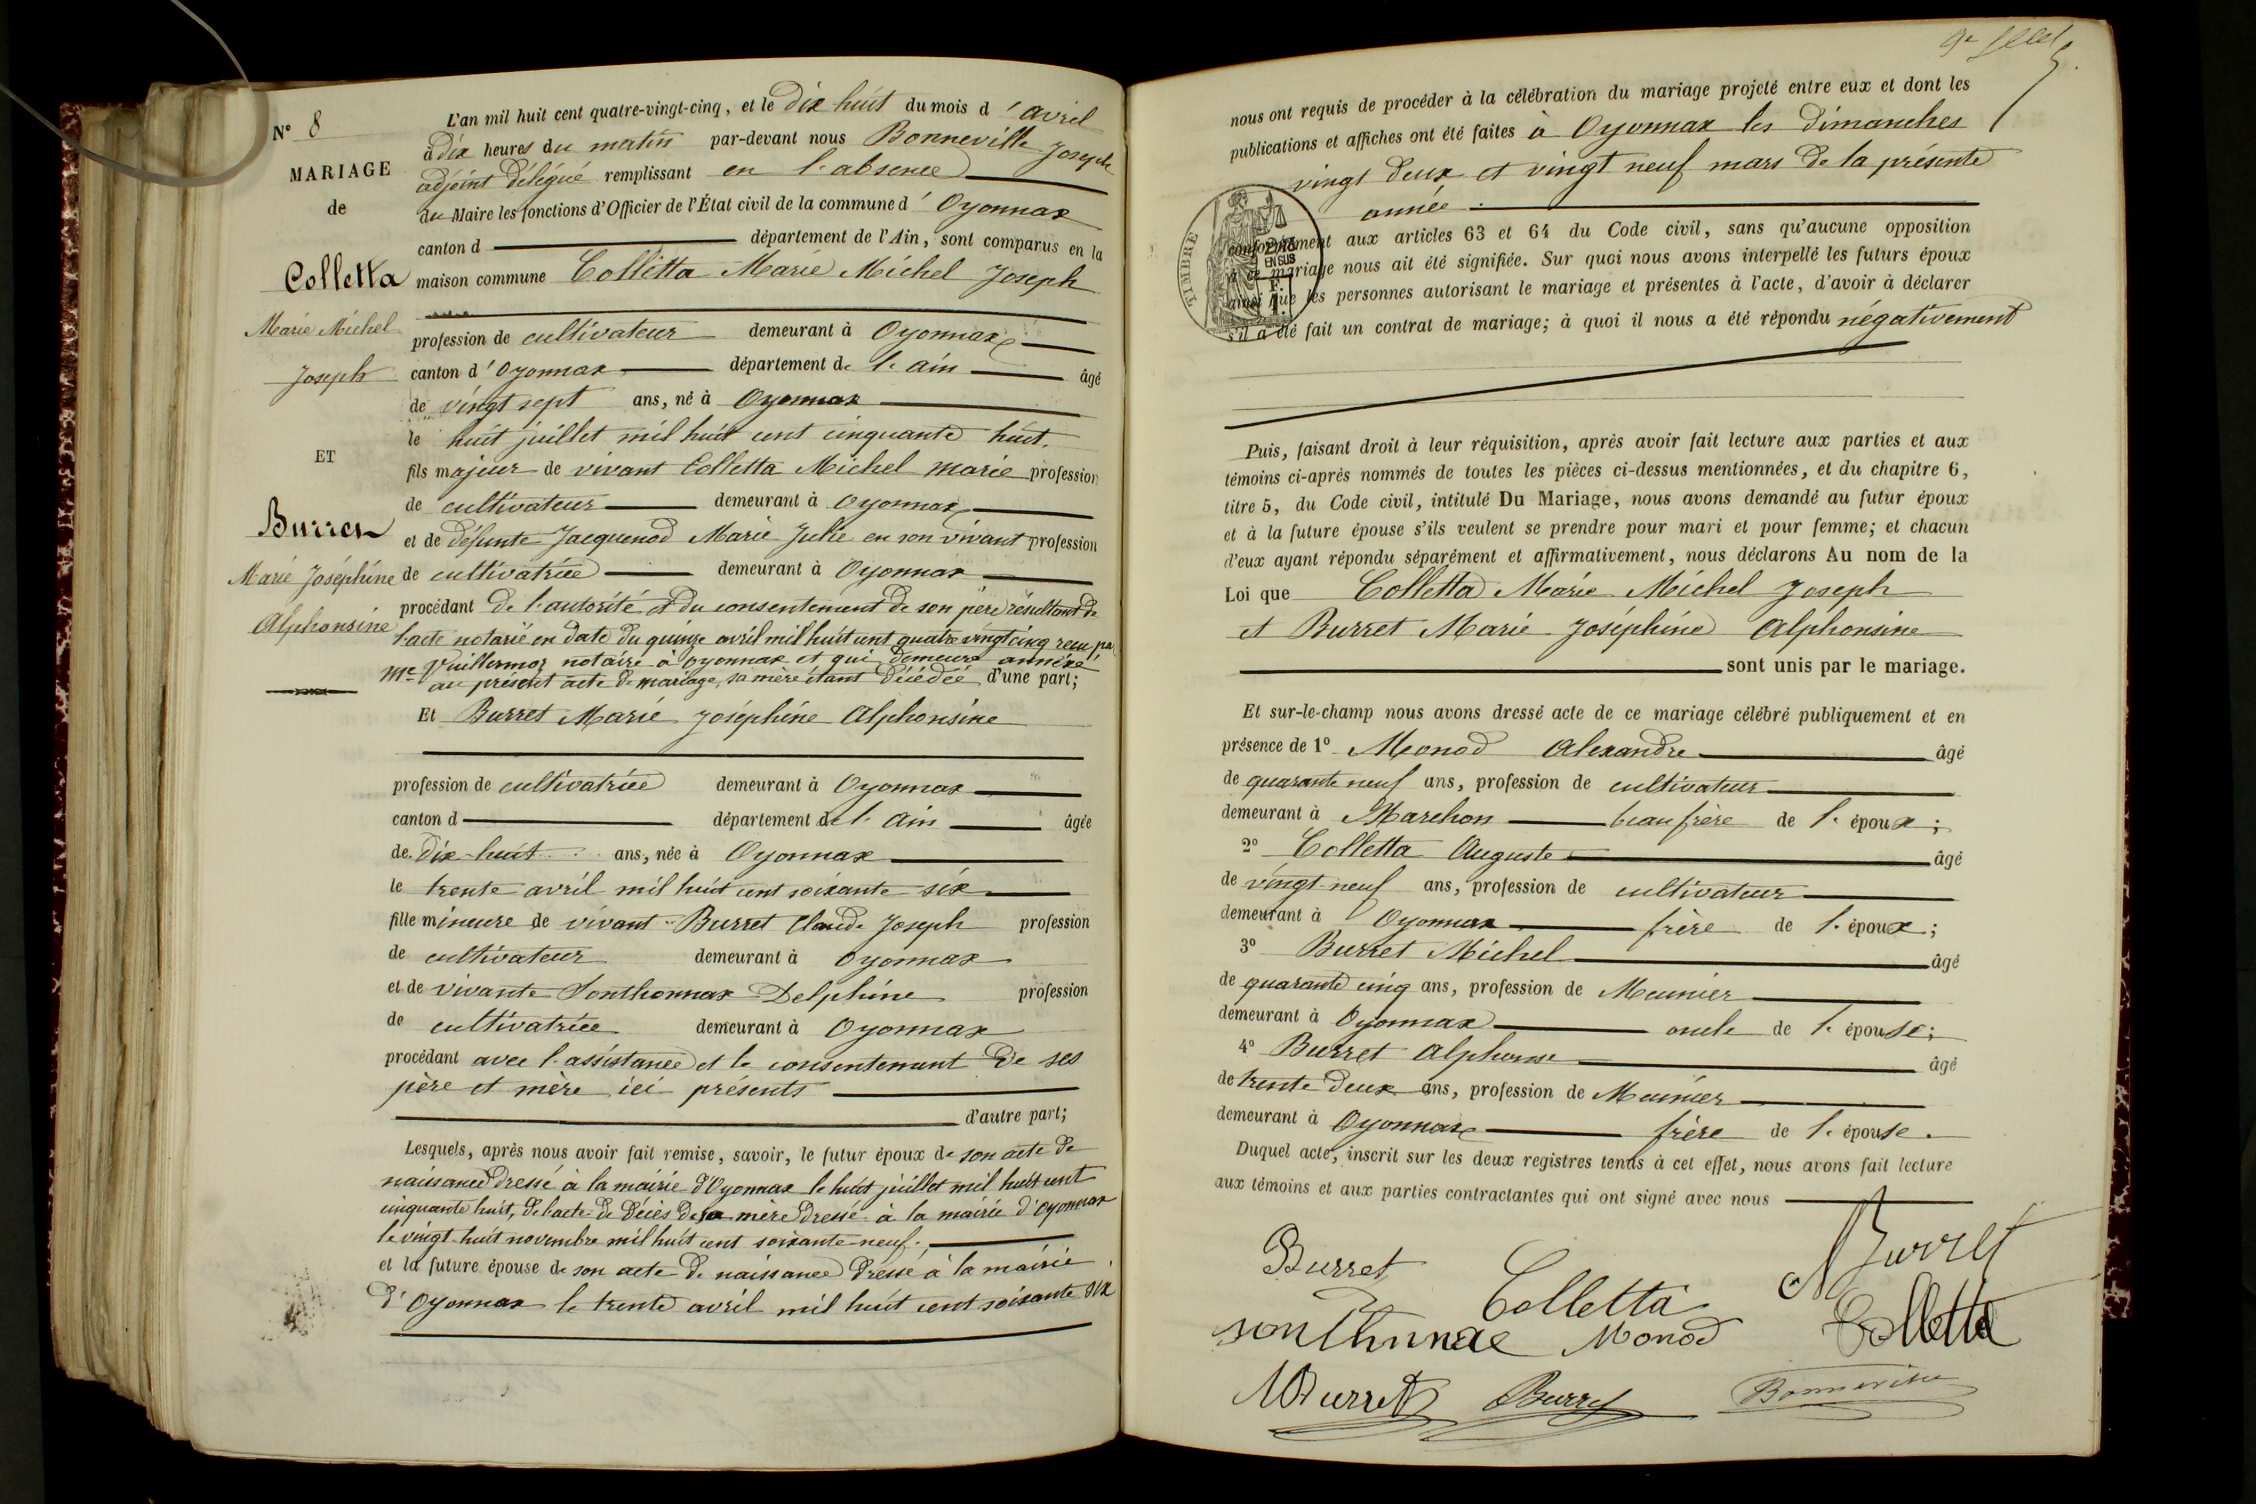 N° 8
MARIAGE
de
Colletta
Marie Michel
Joseph
ET
Burret
Marie Joséphine
Alphonsine
L'an mil huit cent quatre-vingt-cinq, et le dix huit du mois d'avril
à dix heures du matin par-devant nous Bonneville Joseph
adjoint délégué remplissant en l'absence
du Maire les fonctions d'Officier de l'État civil de la commune d'Oyonnax
canton d département de l'Ain, sont comparus en la
maison commune Colletta Marie Michel Joseph
profession de cultivateur demeurant à Oyonnax
canton d'Oyonnax département de l'ain âgé
de vingt sept ans, né à Oyonnax
le huit juillet mil huit cent cinquante huit.
fils majeur de vivant Colletta Michel Marie profession
de cultivateur demeurant à Oyonnax
et de défunte Jacquenod Marie Julie en son vivant profession
de cultivatrice demeurant à Oyonnax
procédant de l'autorité et du consentement de son père résultant de
l'acte notarié en date du quinze avril mil huit cent quatre vingt cinq recu par
Me Vuillermoz notaire à oyonnax et qui demeure annéxé
au présent acte de mariage, sa mère étant décédée d'une part;
Et Burret Marie Joséphine Alphonsine
profession de cultivatrice demeurant à Oyonnax
canton d département de l'Ain âgée
de dix-huit ans, née à Oyonnax
le trente avril mil huit cent soixante six
fille mineure de vivant Burret Claude Joseph profession
de cultivateur demeurant à Oyonnax
et de vivante Sonthonnax Delphine profession
de cultivatrice demeurant à Oyonnax
procédant avec l'assistance et le consentement de ses
père et mère ici présents
d'autre part;
Lesquels, après nous avoir fait remise, savoir, le futur époux de son acte de
naissance dressé à la mairie d'Oyonnax le huit juillet mil huit cent
cinquante huit, de l'acte de décès de sa mère dressé à la mairie d'Oyonnax
le vingt-huit novembre mil huit cent soixante-neuf.
et la future épouse de son acte de naissance dressé à la mairie
d'Oyonnax le trente avril mil huit cent soixante six
nous ont requis de procéder à la célébration du mariage projeté entre eux et dont les
publications et affiches ont été faites à Oyonnax les dimanches
vingt deux et vingt neuf mars de la présente
année.
TIMBRE
EN SUS
conformément aux articles 63 et 64 du Code civil, sans qu'aucune opposition
à ce mariage nous ait été signifiée. Sur quoi nous avons interpellé les futurs époux
ainsi que les personnes autorisant le mariage et présentes à l'acte, d'avoir à déclarer
s'il a été fait un contrat de mariage; à quoi il nous a été répondu négativement
Puis, faisant droit à leur réquisition, après avoir fait lecture aux parties et aux
témoins ci-après nommés de toutes les pièces ci-dessus mentionnées, et du chapitre 6,
titre 5, du Code civil, intitulé Du Mariage, nous avons demandé au futur époux
et à la future épouse s'ils veulent se prendre pour mari et pour femme; et chacun
d'eux ayant répondu séparément et affirmativement, nous déclarons Au nom de la
Loi que Colletta Marie Michel Joseph
et Burret Marie Joséphine Alphonsine
sont unis par le mariage.
Et sur-le-champ nous avons dressé acte de ce mariage célébré publiquement et en
présence de 1° Monod Alexandre âgé
de quarante neuf ans, profession de cultivateur
demeurant à Marchon beau frère de l'époux;
2° Colletta Auguste âgé
de vingt-neuf ans, profession de cultivateur
demeurant à Oyonnax frère de l'époux;
3° Burret Michel âgé
de quarante cinq ans, profession de Meunier
demeurant à Oyonnax oncle de l'épouse;
4° Burret Alphonse âgé
de trente deux ans, profession de Meunier
demeurant à Oyonnax frère de l'épouse.
Duquel acte, inscrit sur les deux registres tenus à cet effet, nous avons fait lecture
aux témoins et aux parties contractantes qui ont signé avec nous
Burret
Colletta
Burret
Sonthonnax Monod Colletta
M Burret Burret Bonneville